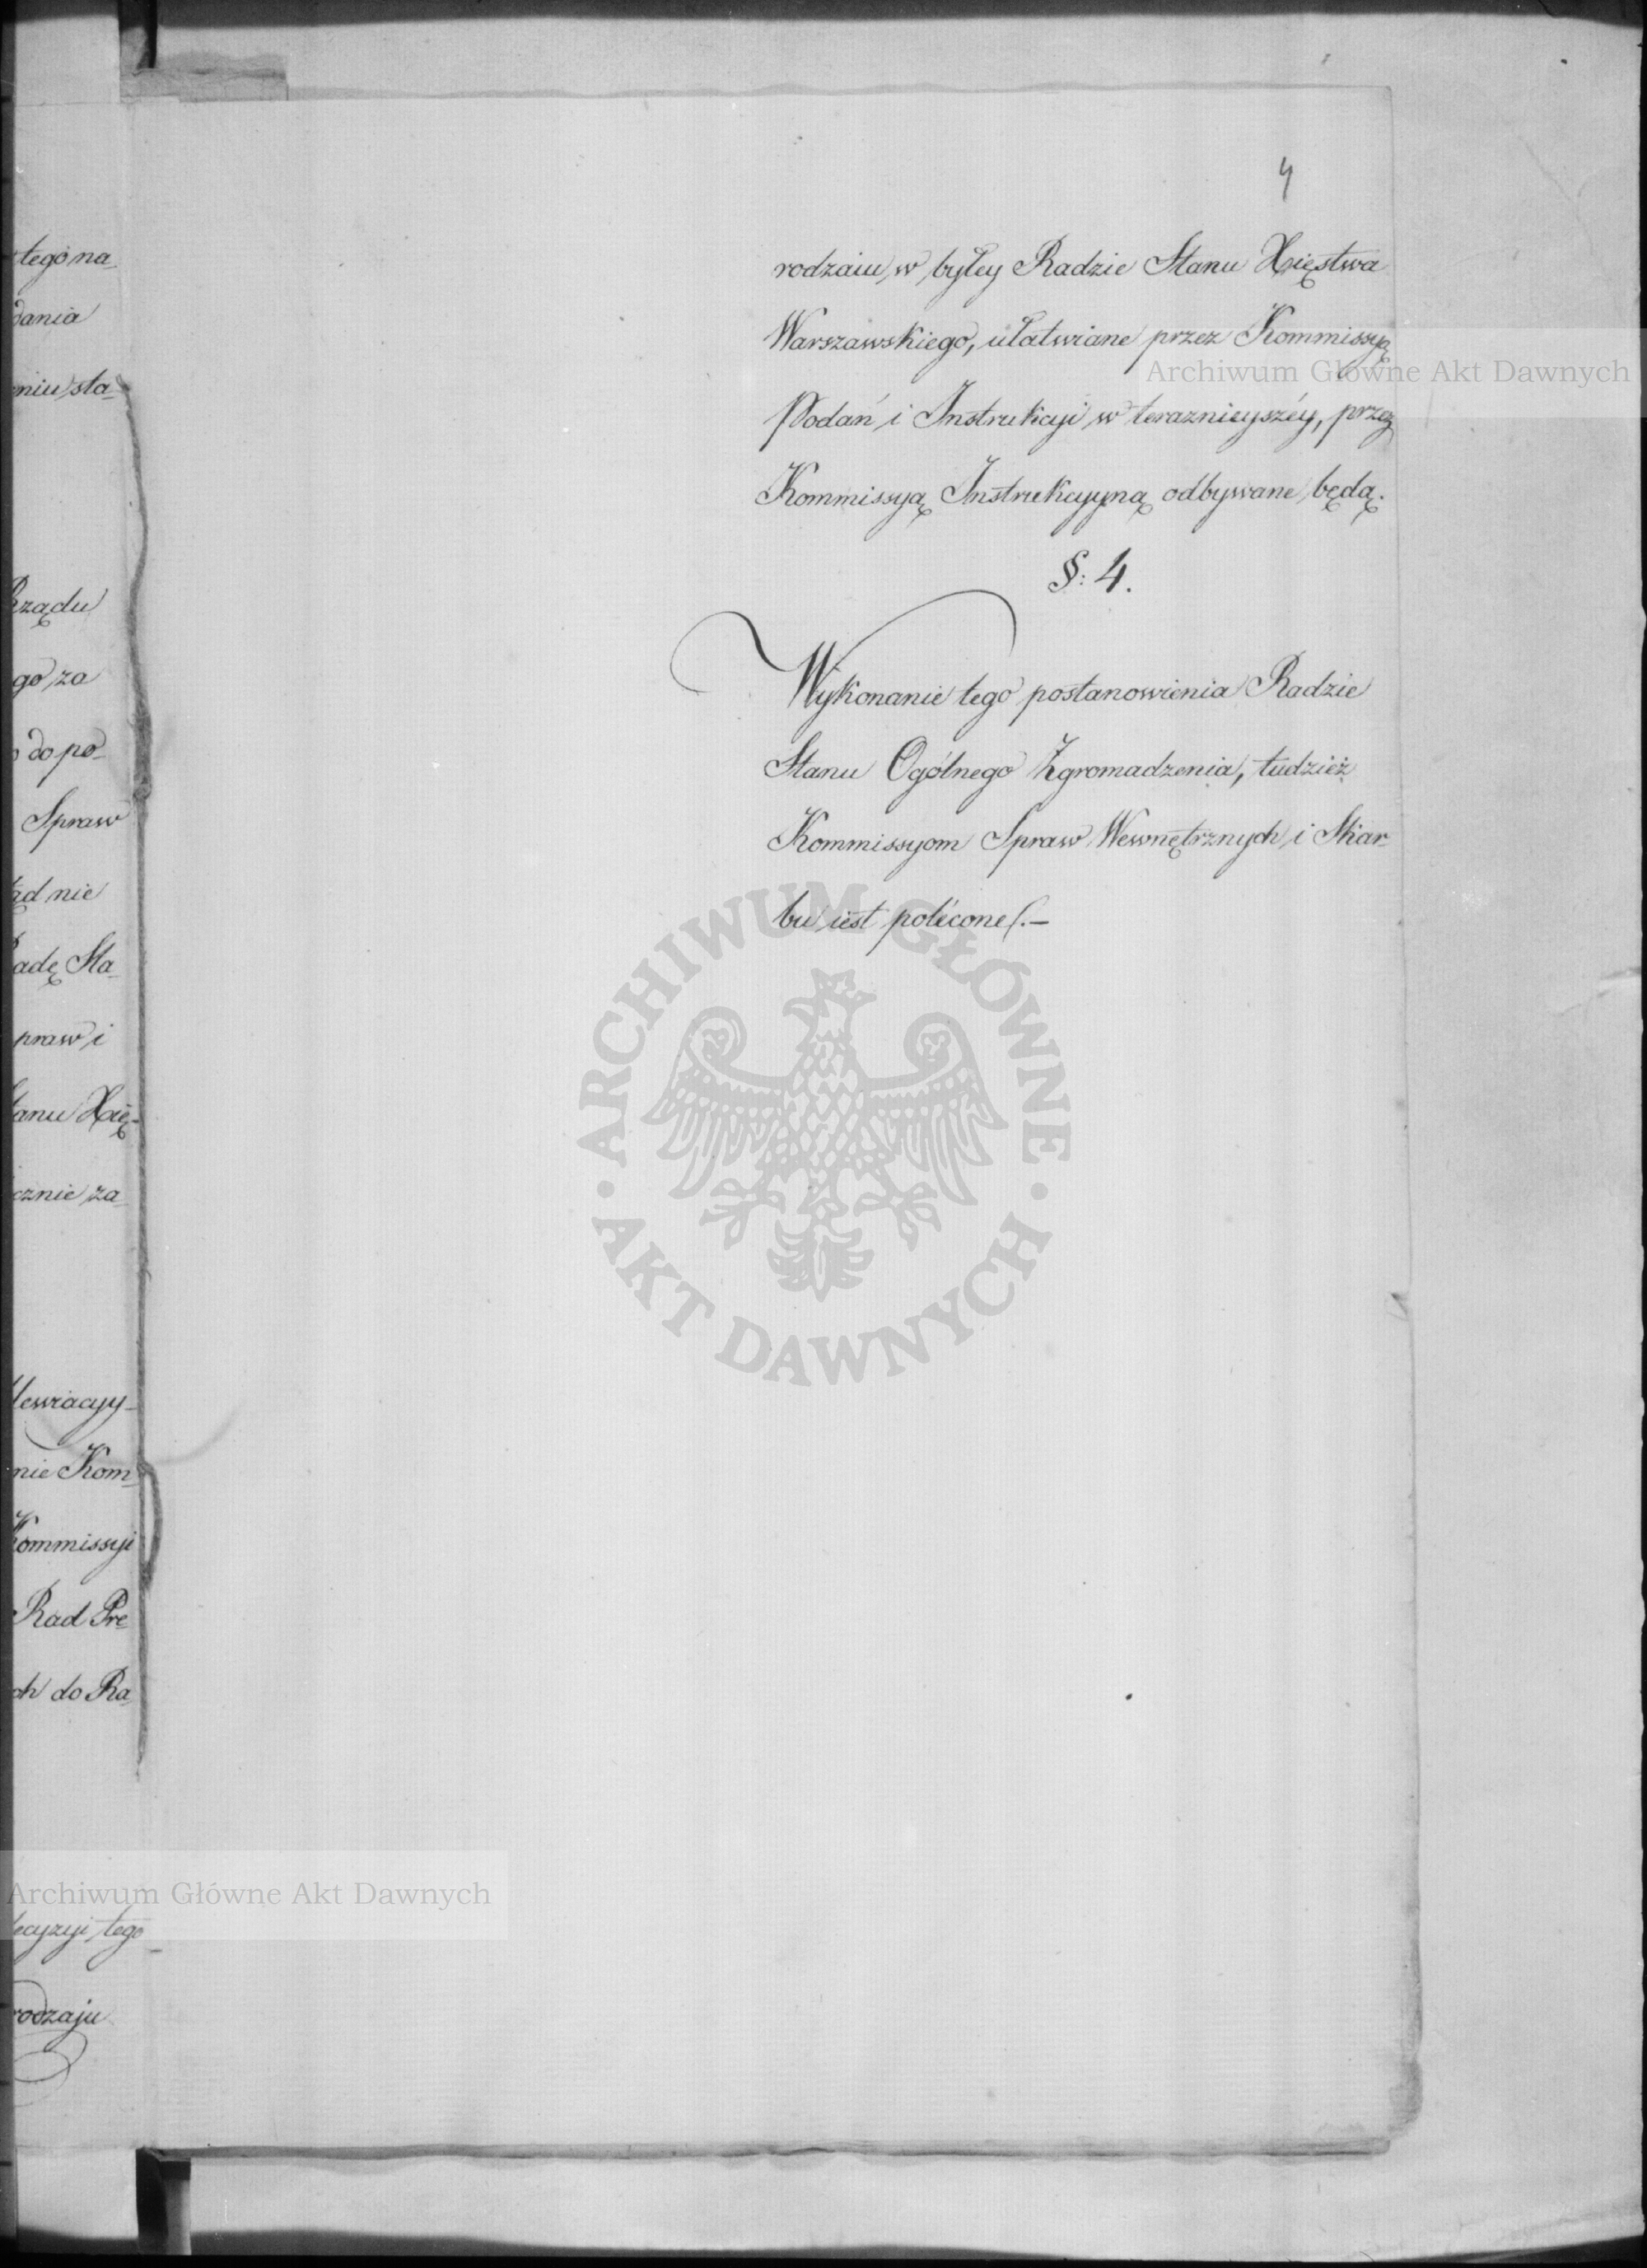 4
rodzaiu w byłey Radzie Stanu Xięstwa
Warszawskiego, ułatwiane przez Kommissyą
Podań i Instrukcyi w teraznieyszéy, przez
Kommissyą Instrukcyyną odbywane będą.
§: 4.
Wykonanie tego postanowienia Radzie
Stanu Ogólnego Zgromadzenia, tudzież
Kommissyom Spraw Wewnętrznych i Skar-
bu iest polécone.—
tego na-
dania
niu sta-
Rządu
go za
do po-
Spraw
nie
Sta-
praw i
Xię-
cznie za-
nie Kom-
Kommissyi
Rad Pre-
ch do Ra-
tego
rodzaju
Archiwum Główne Akt Dawnych
Archiwum Główne Akt Dawnych
ARCHIWUM GŁÓWNE
AKT DAWNYCH